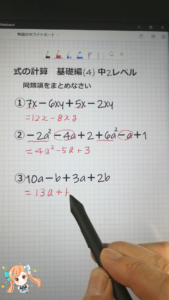 式の計算 基礎編(4) 中2レベル
同類項をまとめなさい
①7x-6xy+5x-2xy
=12x-8xy
②-2a²-4a+2+6a²-a+1
=4a²-5a+3
③10a-b+3a+2b
=13a+